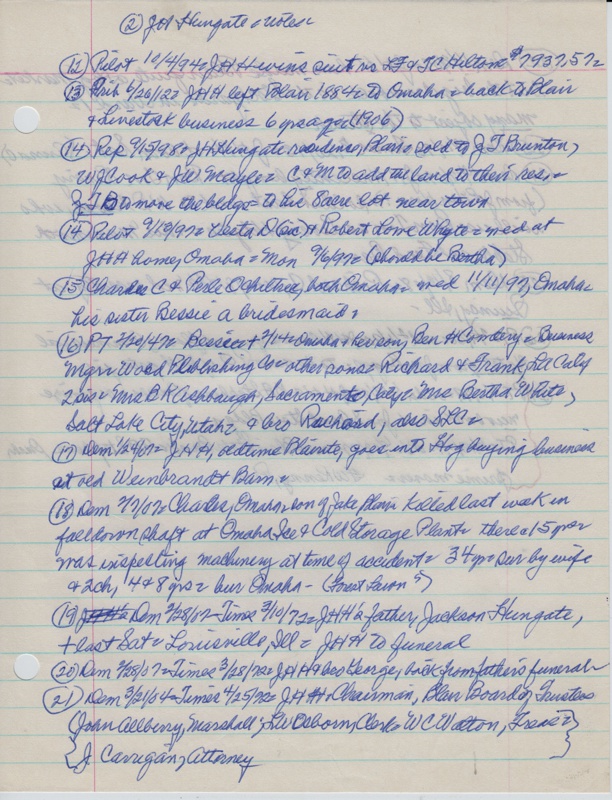 ② JH Hungate Notes
(12) Pilot 10/4/94= JHH wins suit vs LF & JC Hilton= $7937.57=
(13) Trib 6/26/12= JHH left Blair 1884= to Omaha= back to Blair
& Livestock business 6 yrs ago (1906)
(14) Rep 9/15/98= JH Hungate residence, Blair= sold to J T Brunton,
W J Cook & JW Maylee= C & M to add the land to their res, =
JTB to move the bldgs= to his 8 acre lot near town
(14) Pilot 9/10/97= Veeta D (sic) & Robert Lowe Whyte= wed at
JHH home, Omaha= Mon 9/6/97= (should be Bertha)
(15) Charles C & Perle Ochiltree, both Omaha= wed 11/11/97, Omaha=
his sister Bessie a bridesmaid,
(16) PT 7/20/47= Bessie + 7/14= Omaha= her son, Ben H Cowdery= Business
Mgr= World Publishing Co= other sons= Richard & Frank, La Caly
2 sis= Mrs B K Ashbaugh, Sacramento, Caly= Mrs Bertha White,
Salt Lake City, Utah= & bro Richard, also SLC=
(17) Dem 1/24/07= JHH, oldtime Blairite, goes into Hog buying business
at old Weinbrandt Barn=
(18) Dem 2/7/07= Charles, Omaha= son of Jake, Blair= Killed last week in
fall down shaft at Omaha Ice & Cold Storage Plant= there 15 yrs=
was inspecting machinery at time of accident= 34 yrs= sur by wife
& 2 ch, 4 & 8 yrs= bur Omaha- (Forest Lawn?)
(19) Dem 3/28/07= Times 3/10/72= JHH's father, Jackson Hungate,
+ last Sat= Louisville, Ill= JHH to funeral
(20) Dem 3/28/07= Times 3/28/72= JHH & bro George, back from father's funeral
(21) Dem 3/21/64= Times 4/25/72= JHH= Chairman, Blair Board of Trustees
(John Allberry, Marshall; LW Osborn, Clerk= WC Walton, Treas=
J. Carrigan, Attorney